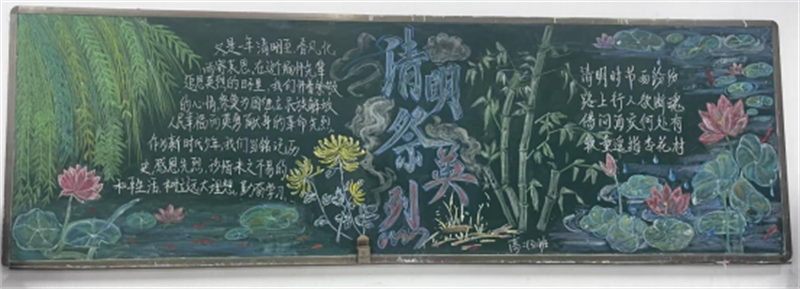 又是一年清明至 春风化
雨寄哀思,在这个缅怀先辈
追思英烈的日子里,我们怀着崇敬
的心情祭奠为国独立 民族解放
人民幸福而英勇献身的革命先烈
作为新时代少年,我们当铭记历
史,感恩先烈,珍惜来之不易的
和平生活,树立远大理想,勤奋学习。
清明祭英烈
清明时节雨纷纷
路上行人欲断魂
借问酒家何处有
牧童遥指杏花村